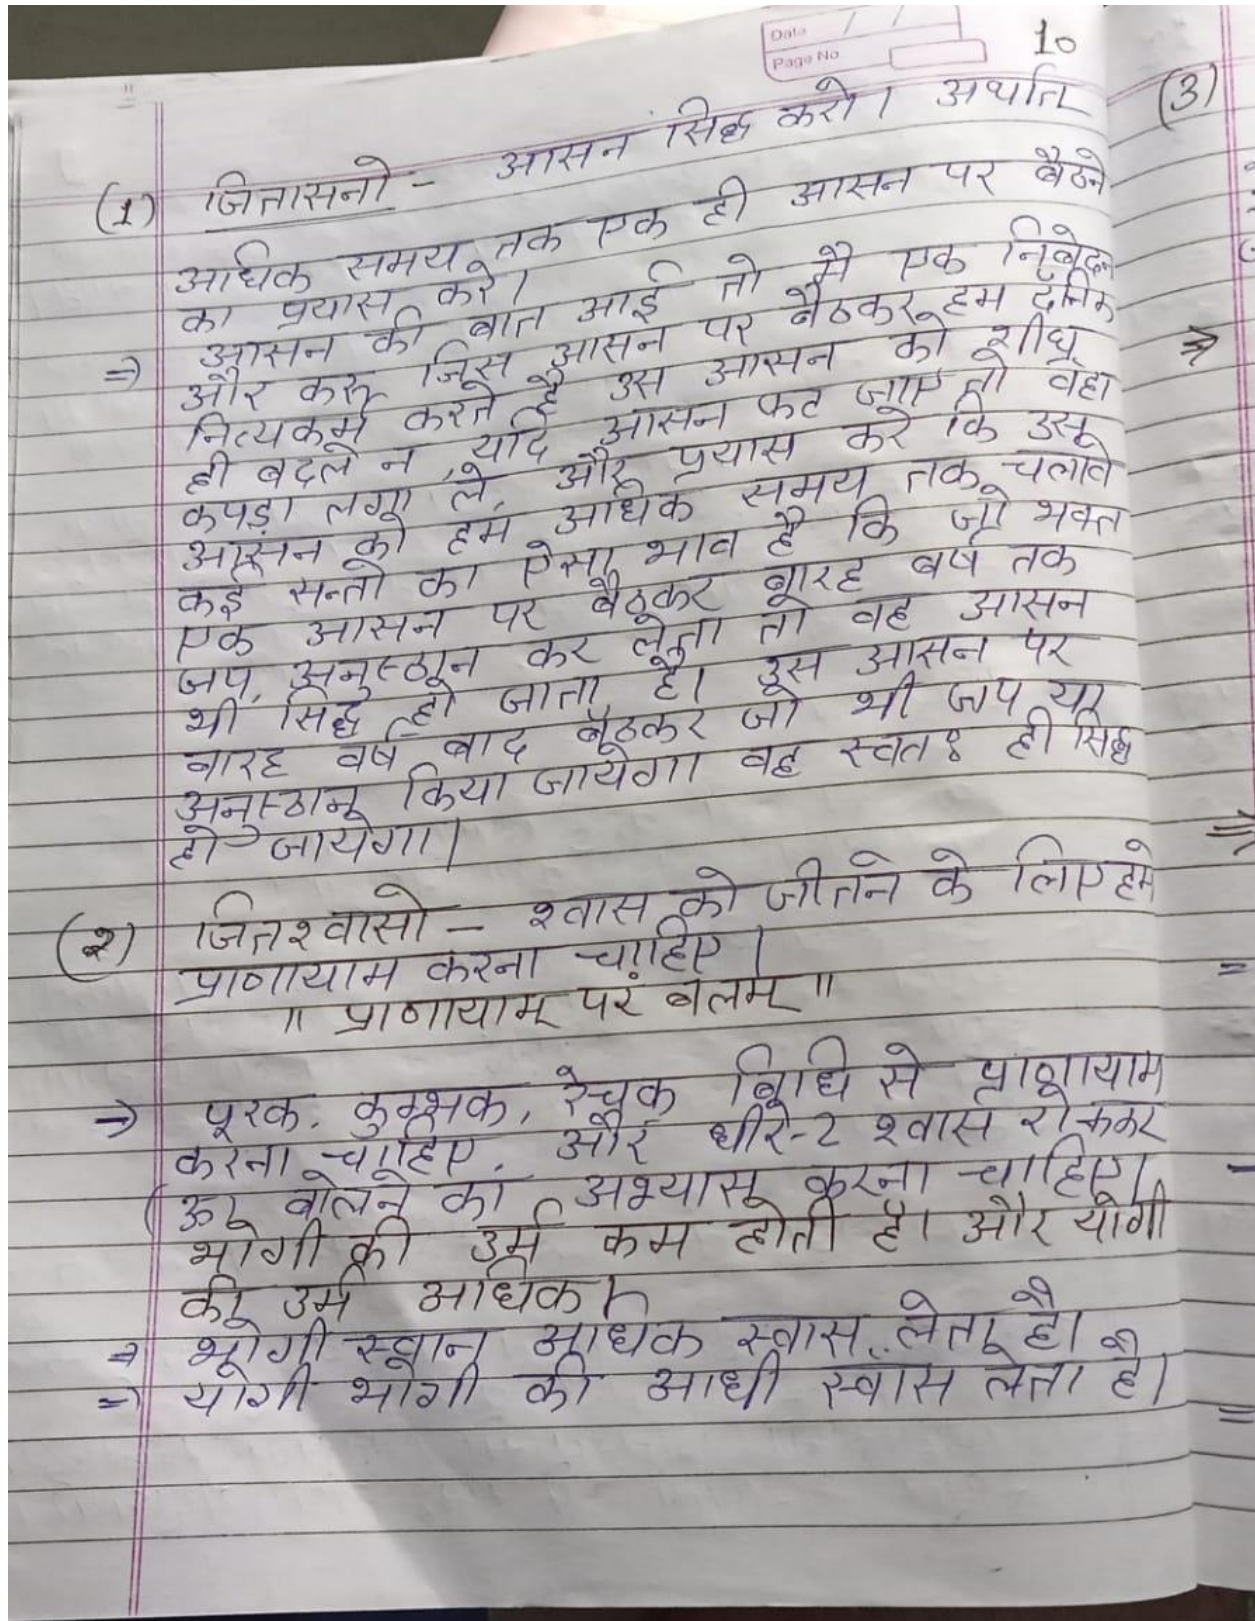 Date / /
Page No
10
(1) जितासनो - आसन सिद्ध करो। अर्थात
अधिक समय तक एक ही आसन पर बैठने
का प्रयास करे।
⇒ आसन की बात आई तो मै एक निवेदन
और करू जिस आसन पर बैठकर हम दैनिक
नित्यकर्म करते है उस आसन को शीघ्र
ही बदले न, यदि आसन फट जाए तो वहा
कपड़ा लगा ले, और प्रयास करे कि उस
आसन को हम अधिक समय तक चलावे
कई सन्तो का ऐसा भाव है कि जो भक्त
एक आसन पर बैठकर बारह वर्ष तक
जप, अनुस्ठान कर लेता तो वह आसन
भी सिद्ध हो जाता है। उस आसन पर
बारह वर्ष बाद बैठकर जो भी जप या
अनुस्ठान किया जायेगा वह स्वतः ही सिद्ध
हो जायेगा।
(२) जितश्वासो - श्वास को जीतने के लिए हमे
प्राणायाम करना चाहिए।
॥ प्राणायाम् परं बलम् ॥
→ पूरक, कुम्भक, रेचक विधि से प्राणायाम
करना चाहिए, और धीरे-2 श्वास रोककर
ऊँ बोलने का अभ्यास करना चाहिए।
भोगी की उर्म कम होती है। और योगी
की उर्म अधिक।
⇒ भोगी स्वान अधिक स्वास लेता है।
⇒ योगी भोगी की आधी स्वास लेता है।
(3)